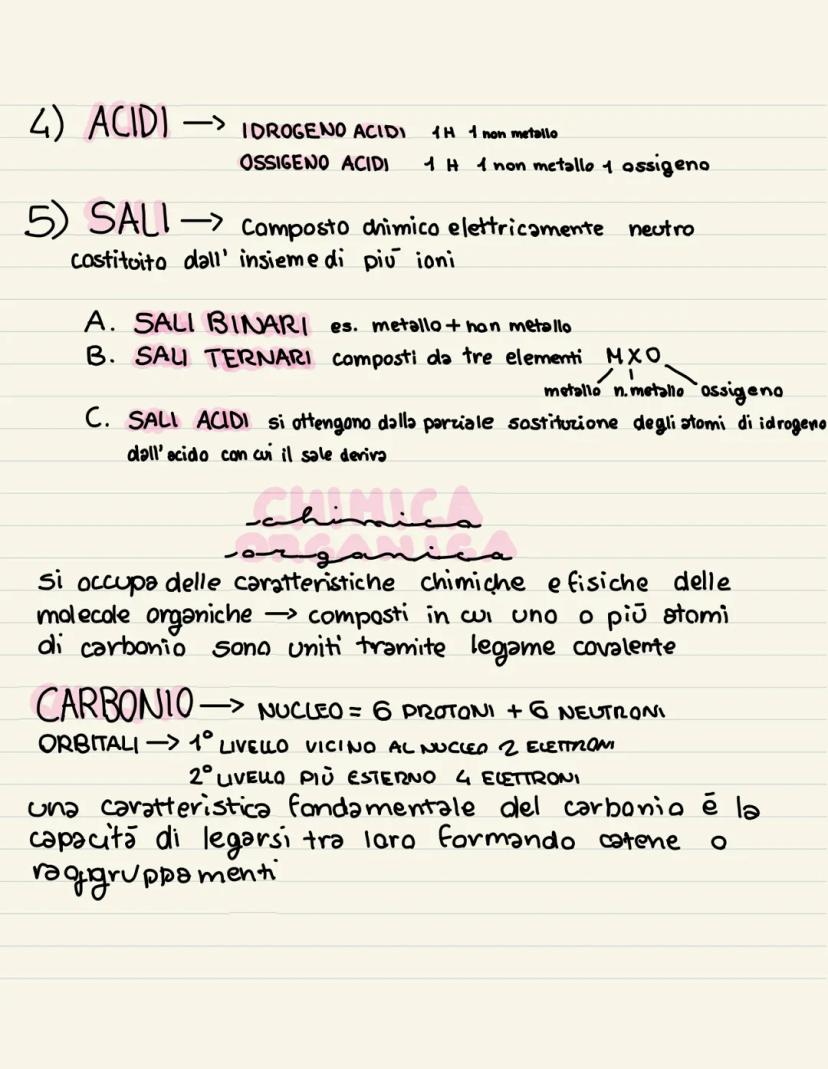 4) ACIDI → IDROGENO ACIDI 1H 1 non metallo
OSSIGENO ACIDI 1 H 1 non metallo 1 ossigeno
5) SALI → Composto chimico elettricamente neutro
costituito dall' insieme di più ioni
A. SALI BINARI es. metallo + non metallo
B. SALI TERNARI composti da tre elementi MXO
metallo n. metallo ossigeno
C. SALI ACIDI si ottengono dalla parziale sostituzione degli atomi di idrogeno
dall'acido con cui il sale deriva
chimica
organica
si occupa delle caratteristiche chimiche e fisiche delle
molecole organiche → composti in cui uno o più atomi
di carbonio sono uniti tramite legame covalente
CARBONIO → NUCLEO = 6 PROTONI + 6 NEUTRONI
ORBITALI → 1° LIVELLO VICINO AL NUCLEO 2 ELETTRONI
2° LIVELLO PIÙ ESTERNO 4 ELETTRONI
una caratteristica fondamentale del carbonio é la
capacità di legarsi tra loro formando catene o
raggruppamenti